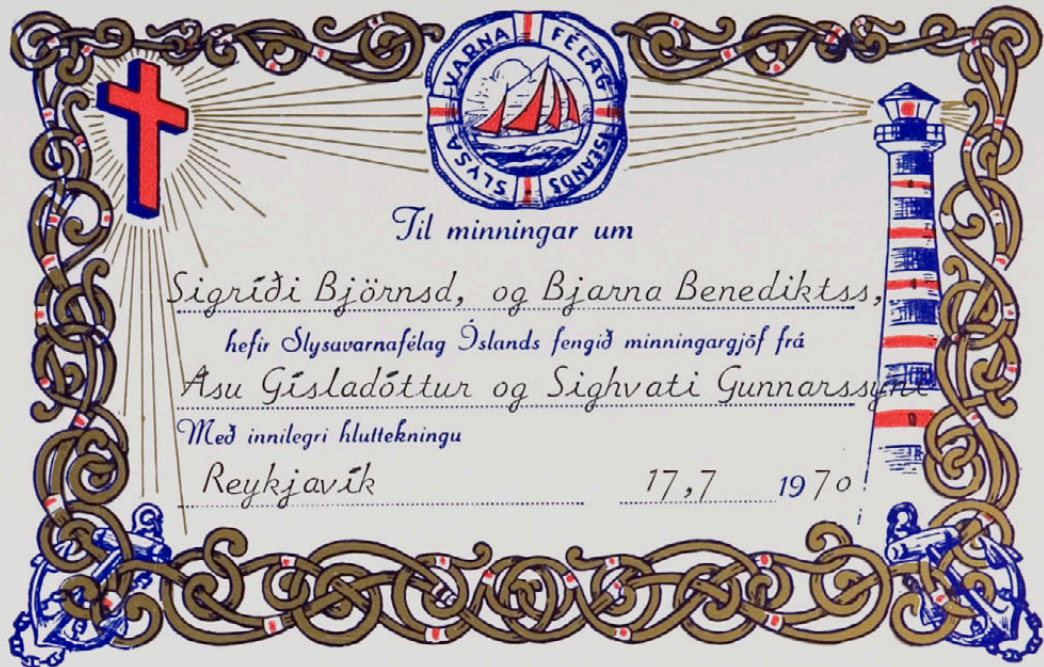 SLYSA VARNA FÉLAG ÍSLANDS
Til minningar um
Sigríði Björnsd, og Bjarna Benediktss,
hefir Slysavarnafélag Íslands fengið minningargjöf frá
Ásu Gísladóttur og Sighvati Gunnarssyni
Með innilegri hluttekningu
Reykjavík 17,7 1970